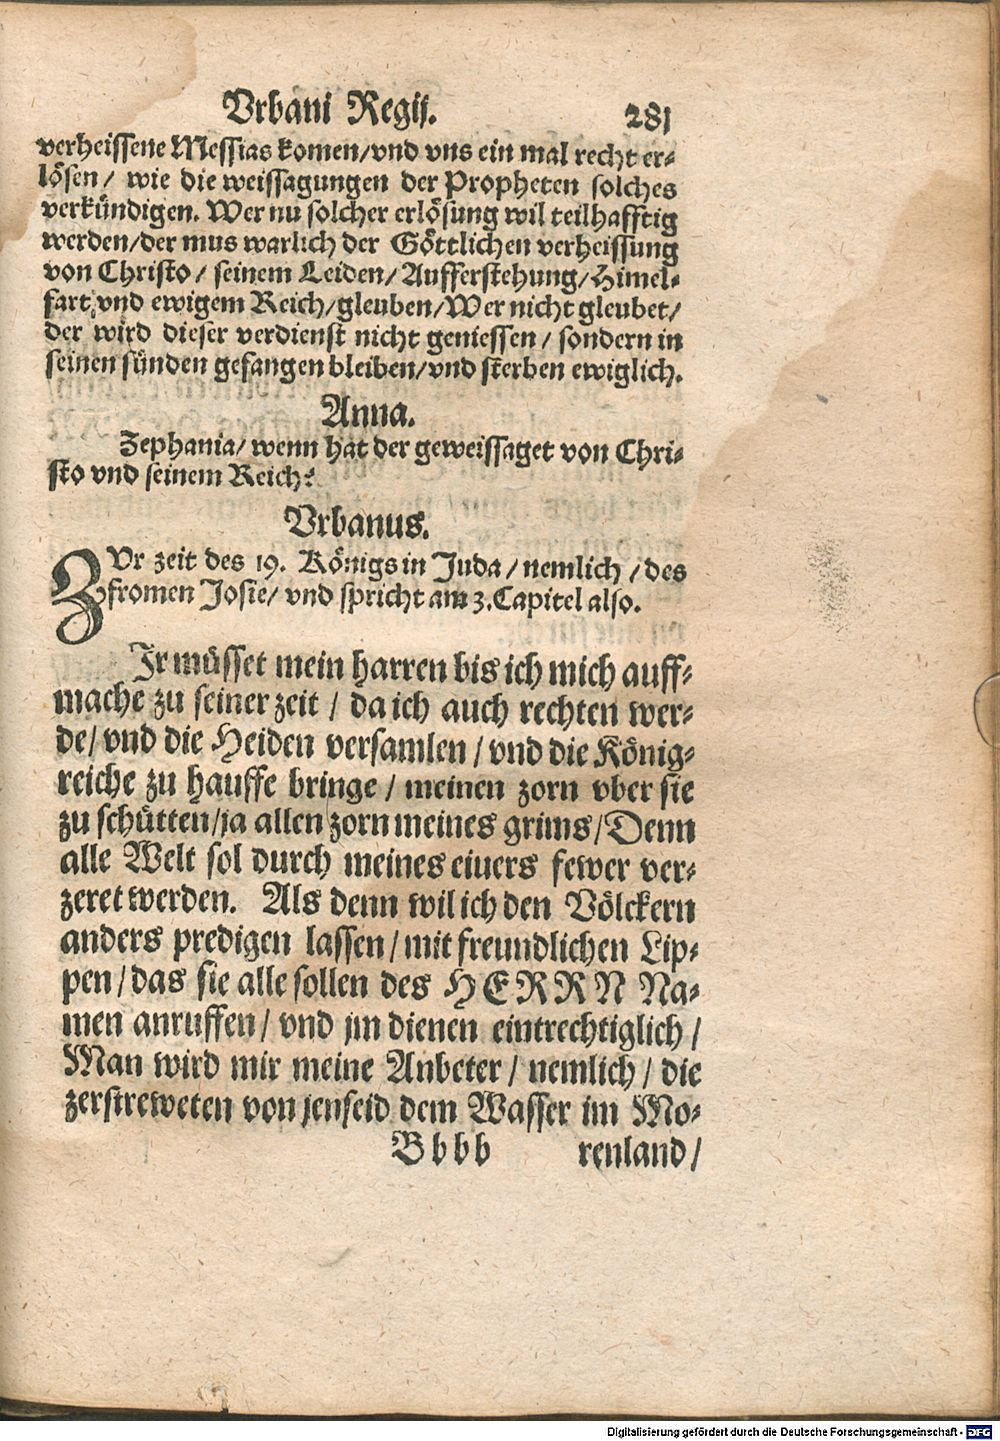 Vrbani Regij. 281
verheissene Messias komen/vnd vns ein mal recht er-
lösen/ wie die weissagungen der Propheten solches
verkündigen. Wer nu solcher erlösung wil teilhafftig
werden/der mus warlich der Göttlichen verheissung
von Christo/ seinem Leiden/Aufferstehung/Himel-
fart/vnd ewigem Reich/gleuben/Wer nicht gleubet/
der wird dieser verdienst nicht geniessen/ sondern in
seinen sünden gefangen bleiben/vnd sterben ewiglich.
Anna.
Zephania/ wenn hat der geweissaget von Chri-
sto vnd seinem Reich?
Vrbanus.
ZVr zeit des 19. Königs in Juda/nemlich/des
fromen Josie/ vnd spricht am 3.Capitel also.
Jr müsset mein harren bis ich mich auff-
mache zu seiner zeit/ da ich auch rechten wer-
de/vnd die Heiden versamlen/vnd die König-
reiche zu hauffe bringe/ meinen zorn vber sie
zu schütten/ja allen zorn meines grims/Denn
alle Welt sol durch meines eiuers fewer ver-
zeret werden. Als denn wil ich den Völckern
anders predigen lassen/mit freundlichen Lip-
pen/das sie alle sollen des HERRN Na-
men anruffen/ vnd jm dienen eintrechtiglich/
Man wird mir meine Anbeter/ nemlich/ die
zerstreweten von jenseid dem Wasser im Mo-
Bbbb renland/
Digitalisierung gefördert durch die Deutsche Forschungsgemeinschaft - DFG